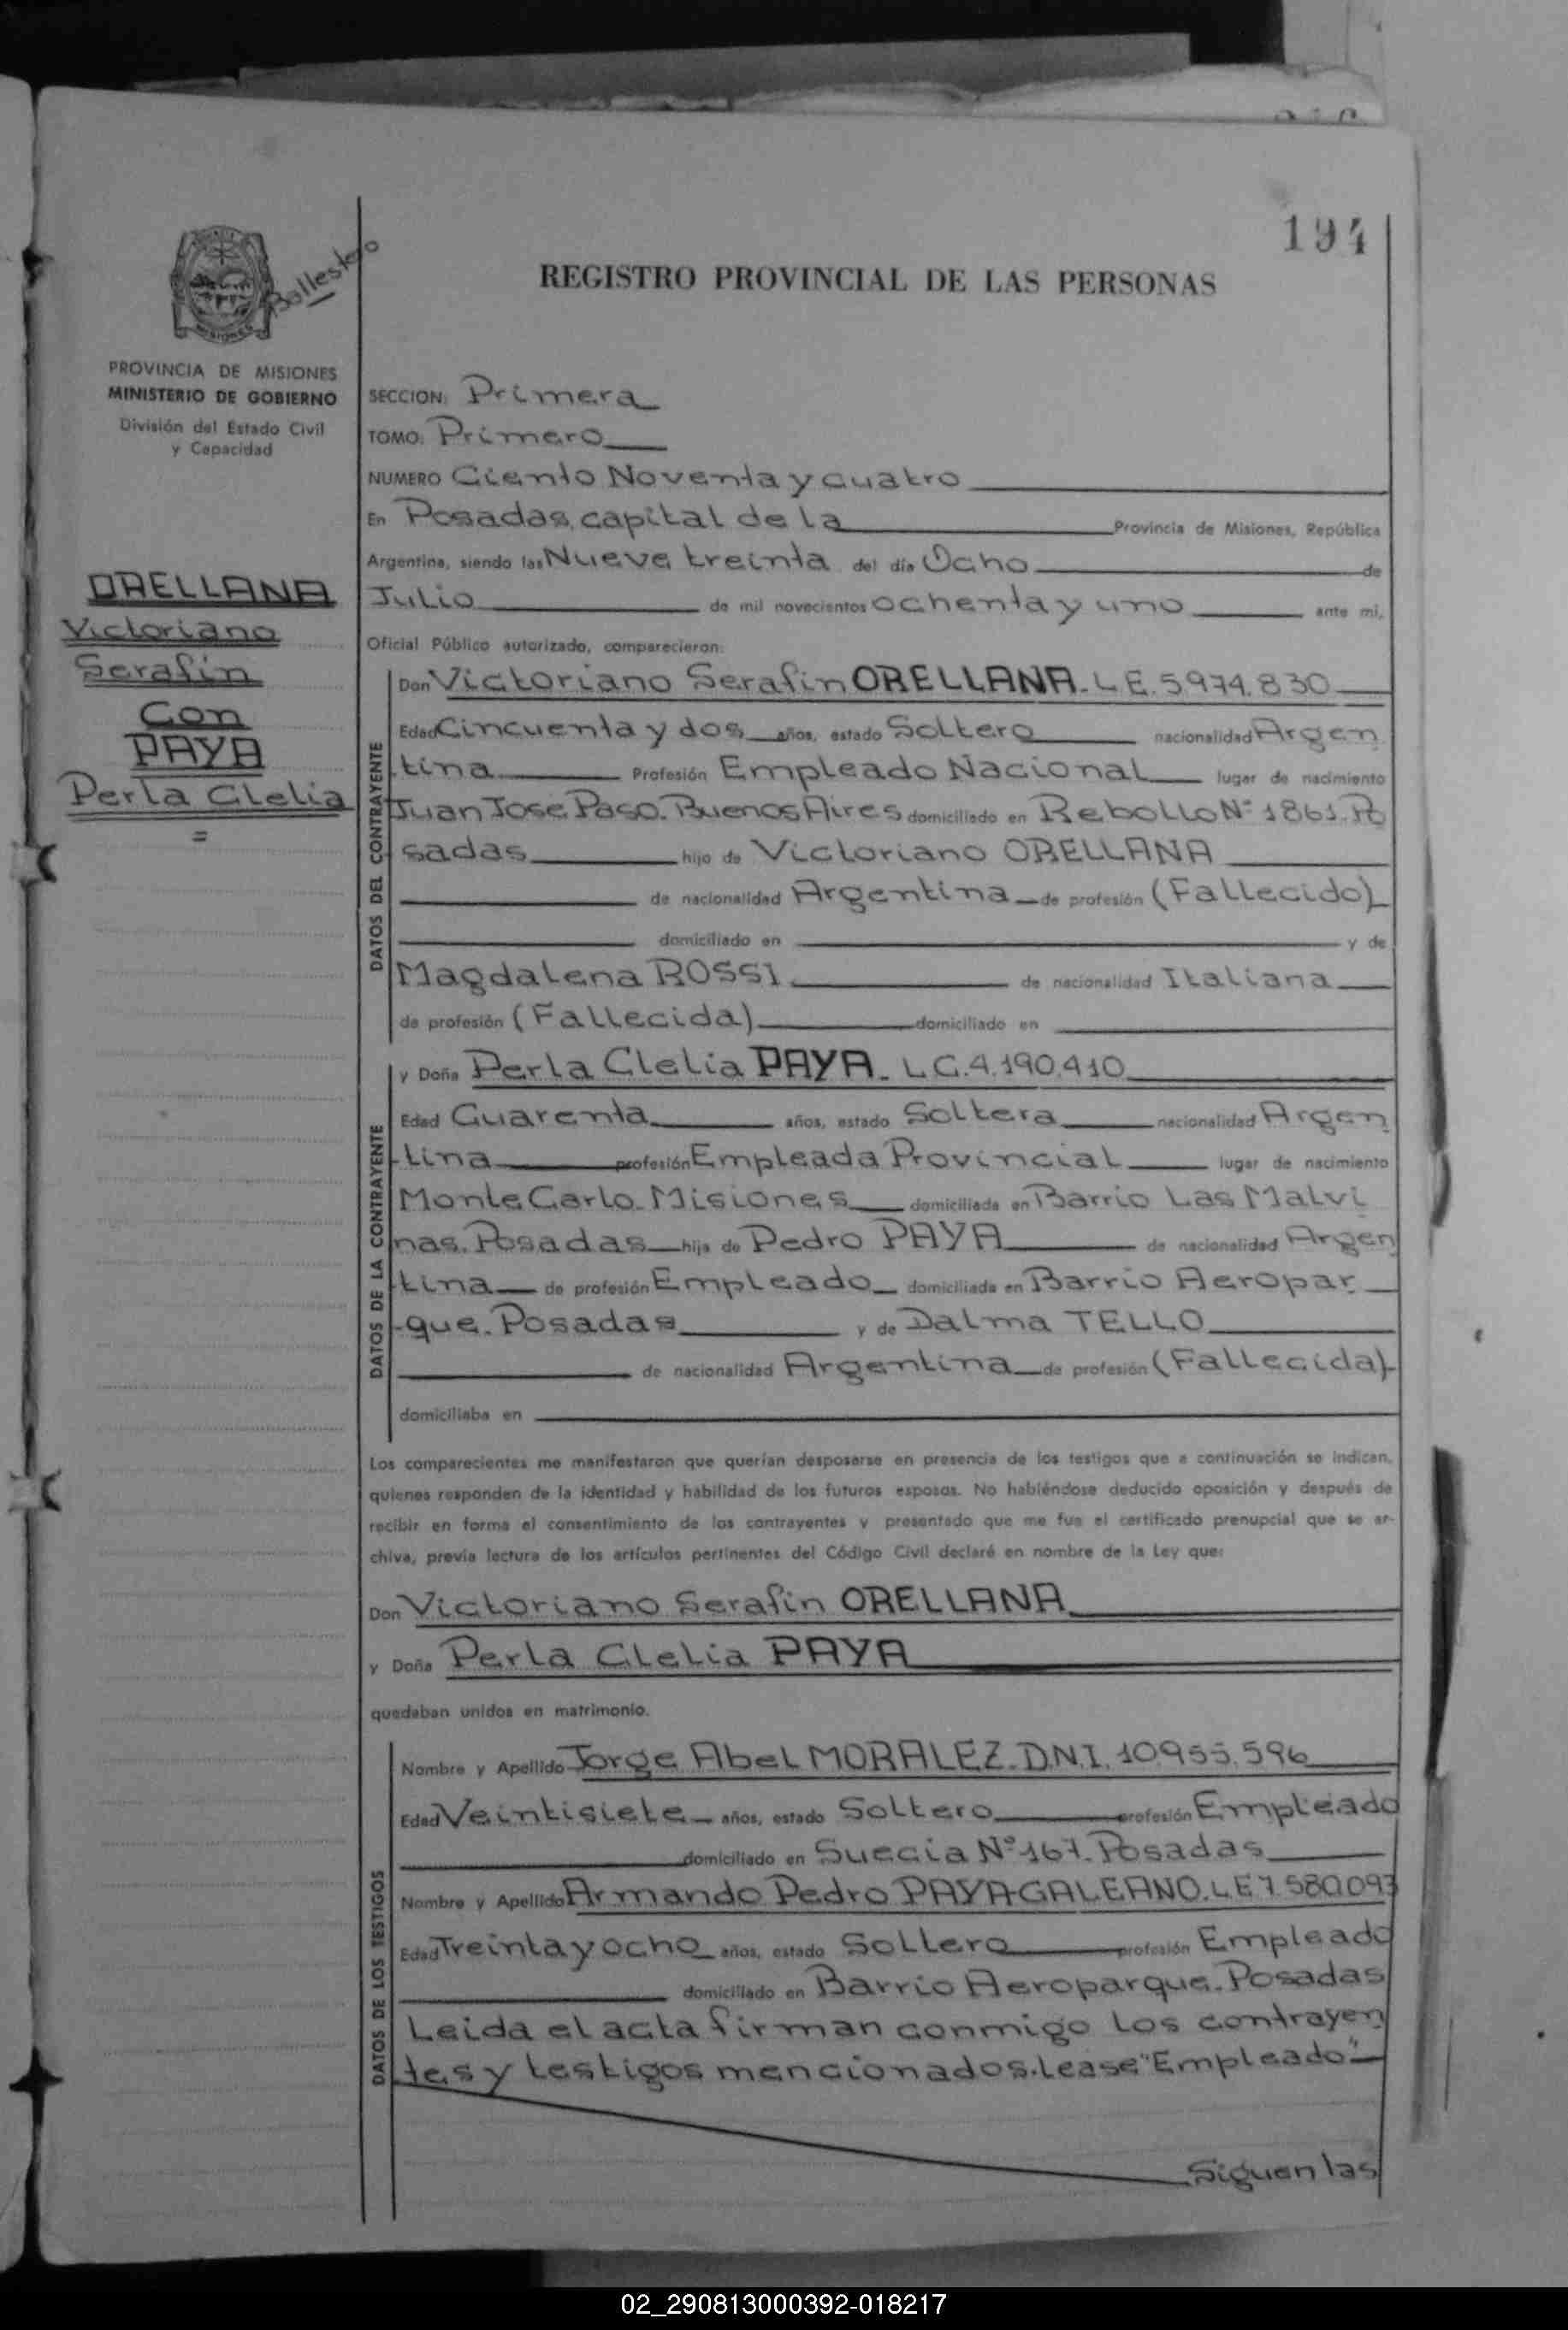 194
Ballestero
REGISTRO PROVINCIAL DE LAS PERSONAS
MISIONES
PROVINCIA DE MISIONES
MINISTERIO DE GOBIERNO
División del Estado Civil
y Capacidad
SECCION: Primera
TOMO: Primero
NUMERO Ciento Noventa y cuatro
En Posadas, capital de la Provincia de Misiones, República
Argentina, siendo las Nueve treinta del día Ocho de
Julio de mil novecientos ochenta y uno ante mí,
Oficial Público autorizado, comparecieron:
ORELLANA
Victoriano
Serafin
Con
PAYA
Perla Clelia
=
DATOS DEL CONTRAYENTE
Don Victoriano Serafin ORELLANA. L.E. 5974.830
Edad Cincuenta y dos años, estado Soltero nacionalidad Argen
tina Profesión Empleado Nacional lugar de nacimiento
Juan José Paso. Buenos Aires domiciliado en Rebollo Nº 1861. Po
sadas hijo de Victoriano ORELLANA
de nacionalidad Argentina de profesión (Fallecido)
domiciliado en y de
Magdalena ROSSI de nacionalidad Italiana
de profesión (Fallecida) domiciliado en
DATOS DE LA CONTRAYENTE
y Doña Perla Clelia PAYA. L.C. 4.190.410
Edad Cuarenta años, estado Soltera nacionalidad Argen
tina profesión Empleada Provincial lugar de nacimiento
Monte Carlo. Misiones domiciliada en Barrio Las Malvi
nas. Posadas hija de Pedro PAYA de nacionalidad Argen
tina de profesión Empleado domiciliada en Barrio Aeropar
que. Posadas y de Dalma TELLO
de nacionalidad Argentina de profesión (Fallecida)
domiciliaba en
Los comparecientes me manifestaron que querían desposarse en presencia de los testigos que a continuación se indican,
quienes responden de la identidad y habilidad de los futuros esposos. No habiéndose deducido oposición y después de
recibir en forma el consentimiento de los contrayentes y presentado que me fue el certificado prenupcial que se ar-
chiva, previa lectura de los artículos pertinentes del Código Civil declaré en nombre de la Ley que:
Don Victoriano Serafin ORELLANA
y Doña Perla Clelia PAYA
quedaban unidos en matrimonio.
DATOS DE LOS TESTIGOS
Nombre y Apellido Jorge Abel MORALEZ. D.N.I. 10.955.596
Edad Veintisiete años, estado Soltero profesión Empleado
domiciliado en Suecia Nº 167. Posadas
Nombre y Apellido Armando Pedro PAYA GALEANO. L.E 7.580.093
Edad Treinta y ocho años, estado Soltero profesión Empleado
domiciliado en Barrio Aeroparque. Posadas
Leida el acta firman conmigo los contrayen
tes y testigos mencionados. Lease "Empleado"
Siguen las
02_290813000392-018217